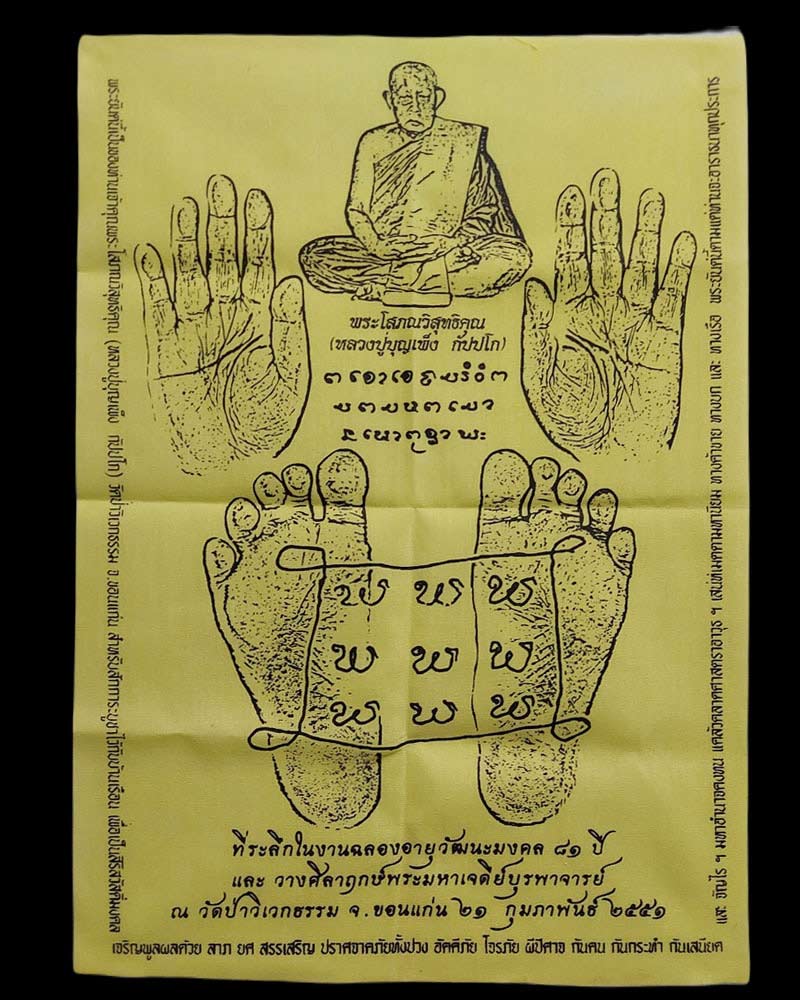 พระโสภณวิสุทธิคุณ
(หลวงปู่บุญเพ็ง กัปปโก)
ที่ระลึกในงานฉลองอายุวัฒนะมงคล ๘๑ ปี
และ วางศิลาฤกษ์พระมหาเจดีย์บูรพาจารย์
ณ วัดป่าวิเวกธรรม จ.ขอนแก่น ๒๑ กุมภาพันธ์ ๒๕๕๑
พระยันต์นี้เป็นของท่านเจ้าคุณพระโสภณวิสุทธิคุณ (หลวงปู่บุญเพ็ง กัปปโก) วัดป่าวิเวกธรรม จ.ขอนแก่น สำหรับสักการะบูชาไว้กับบ้านเรือน เพื่อเป็นสิริสวัสดิ์มงคล
เจริญพูลผลด้วย ลาภ ยศ สรรเสริญ ปราศจากภัยทั้งปวง อัคคีภัย โจรภัย ผีปิศาจ กันคน กันกระทำ กันเสนียด
และ จัญไร ฯ มหาอำนาจคงทน แคล้วคลาดศาสตราอาวุธ ฯ เสน่ห์เมตตามหานิยม ทางค้าขาย ทางบก และ ทางเรือ พระยันต์นี้ตามแต่ท่านจะอาราธนาทุกประการ